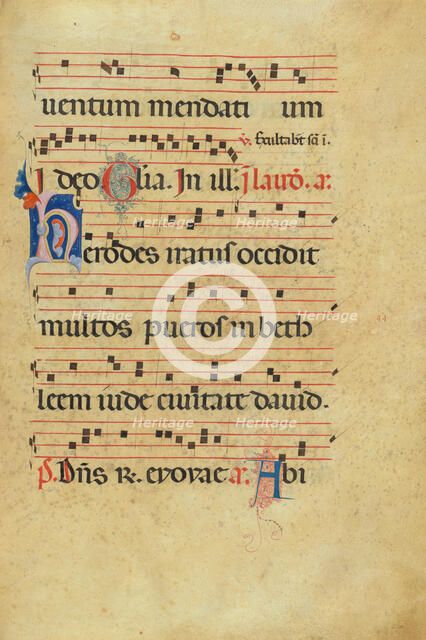 uentum mendati um
℣. Exultabt sci i.
I deo Glia. In ill. I laud. a.
Herodes iratus occidit
multos pueros in beth
leem iude ciuitate dauid.
p̃. Dñs R. ex a. Abi
44
Heritage
Heritage
Heritage
Heritage
Heritage
Heritage
©